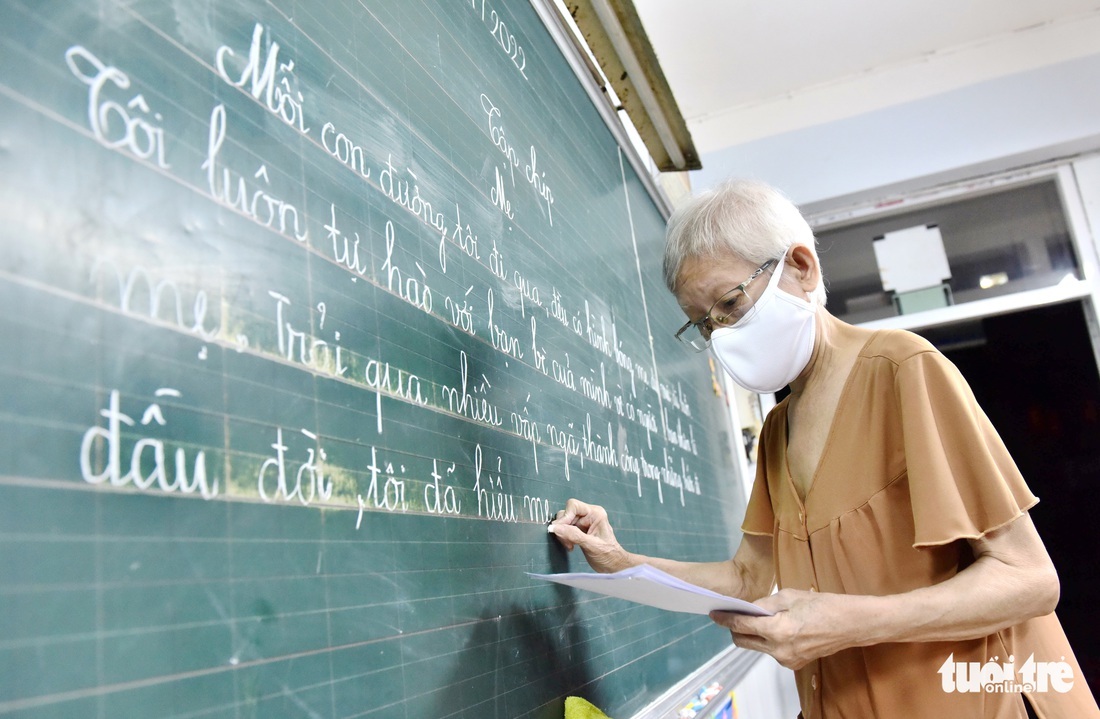 /2022
Tập chép
Mẹ
Mỗi con đường tôi đi qua, đều có hình bóng mẹ
Tôi luôn tự hào với bạn bè của mình vì có người
mẹ. Trải qua nhiều vấp ngã, thành công trong những
đầu đời, tôi đã hiểu mẹ
tuổi trẻ
online